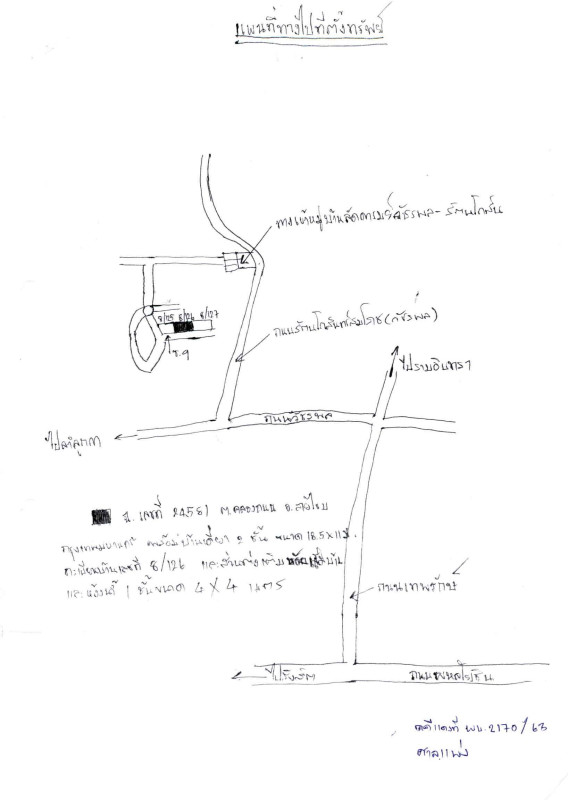 แผนที่ทางไปที่ตั้งทรัพย์
ทางเข้าหมู่บ้านลัดดารมย์วัชรพล-รัตนโกสินทร์
8/125 8/126 8/127
ซ.9
ถนนรัตนโกสินทร์สมโภช(วัชรพล)
ไปรามอินทรา
ถนนวัชรพล
ไปลำลูกกา
ฉ. เลขที่ 24581 ต.คลองถนน อ.สายไหม
กรุงเทพมหานคร พร้อมบ้านเดี่ยว 2 ชั้น ขนาด 18.5x11 ม.
ทะเบียนบ้านเลขที่ 8/126 และส่วนต่อเติม
และ 1 ชั้นขนาด 4 X 4 เมตร
ถนนเทพรักษ์
ไปรังสิต
ถนนพหลโยธิน
คดีแดงที่ ผบ.2170/63
ศาลแพ่ง